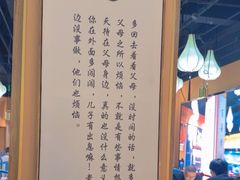 多回去看看父母，没时间的话，就多
父母之所以烦恼，不就是有些事情想
天待在父母身边，真的也没什么意
你在外面多闯闯，儿子有出息嘛！老
边没事做，他们也烦恼。